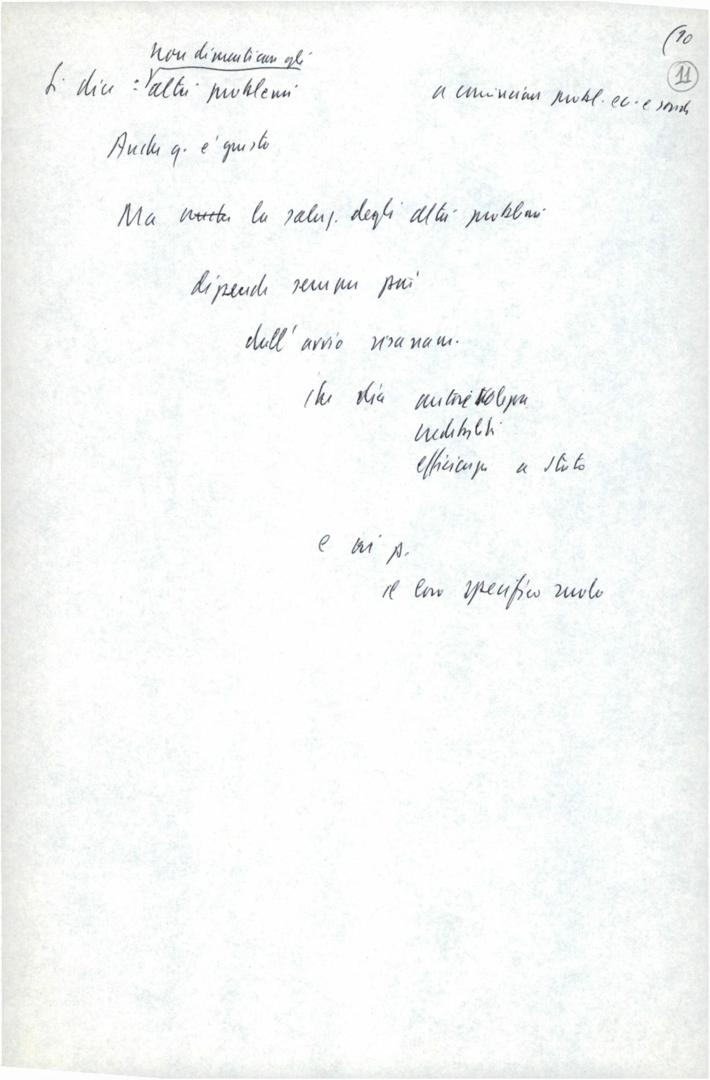 (10
11
non dimenticare gli
Si dice : altri problemi a cominciare probl. ec. e sociali
Anche q. è giusto
Ma anche la soluz. degli altri problemi
dipende sempre più
dall'avvio risanam.
che dia autorevolezza
credibilità
efficienza a stato
e ai p.
il loro specifico ruolo